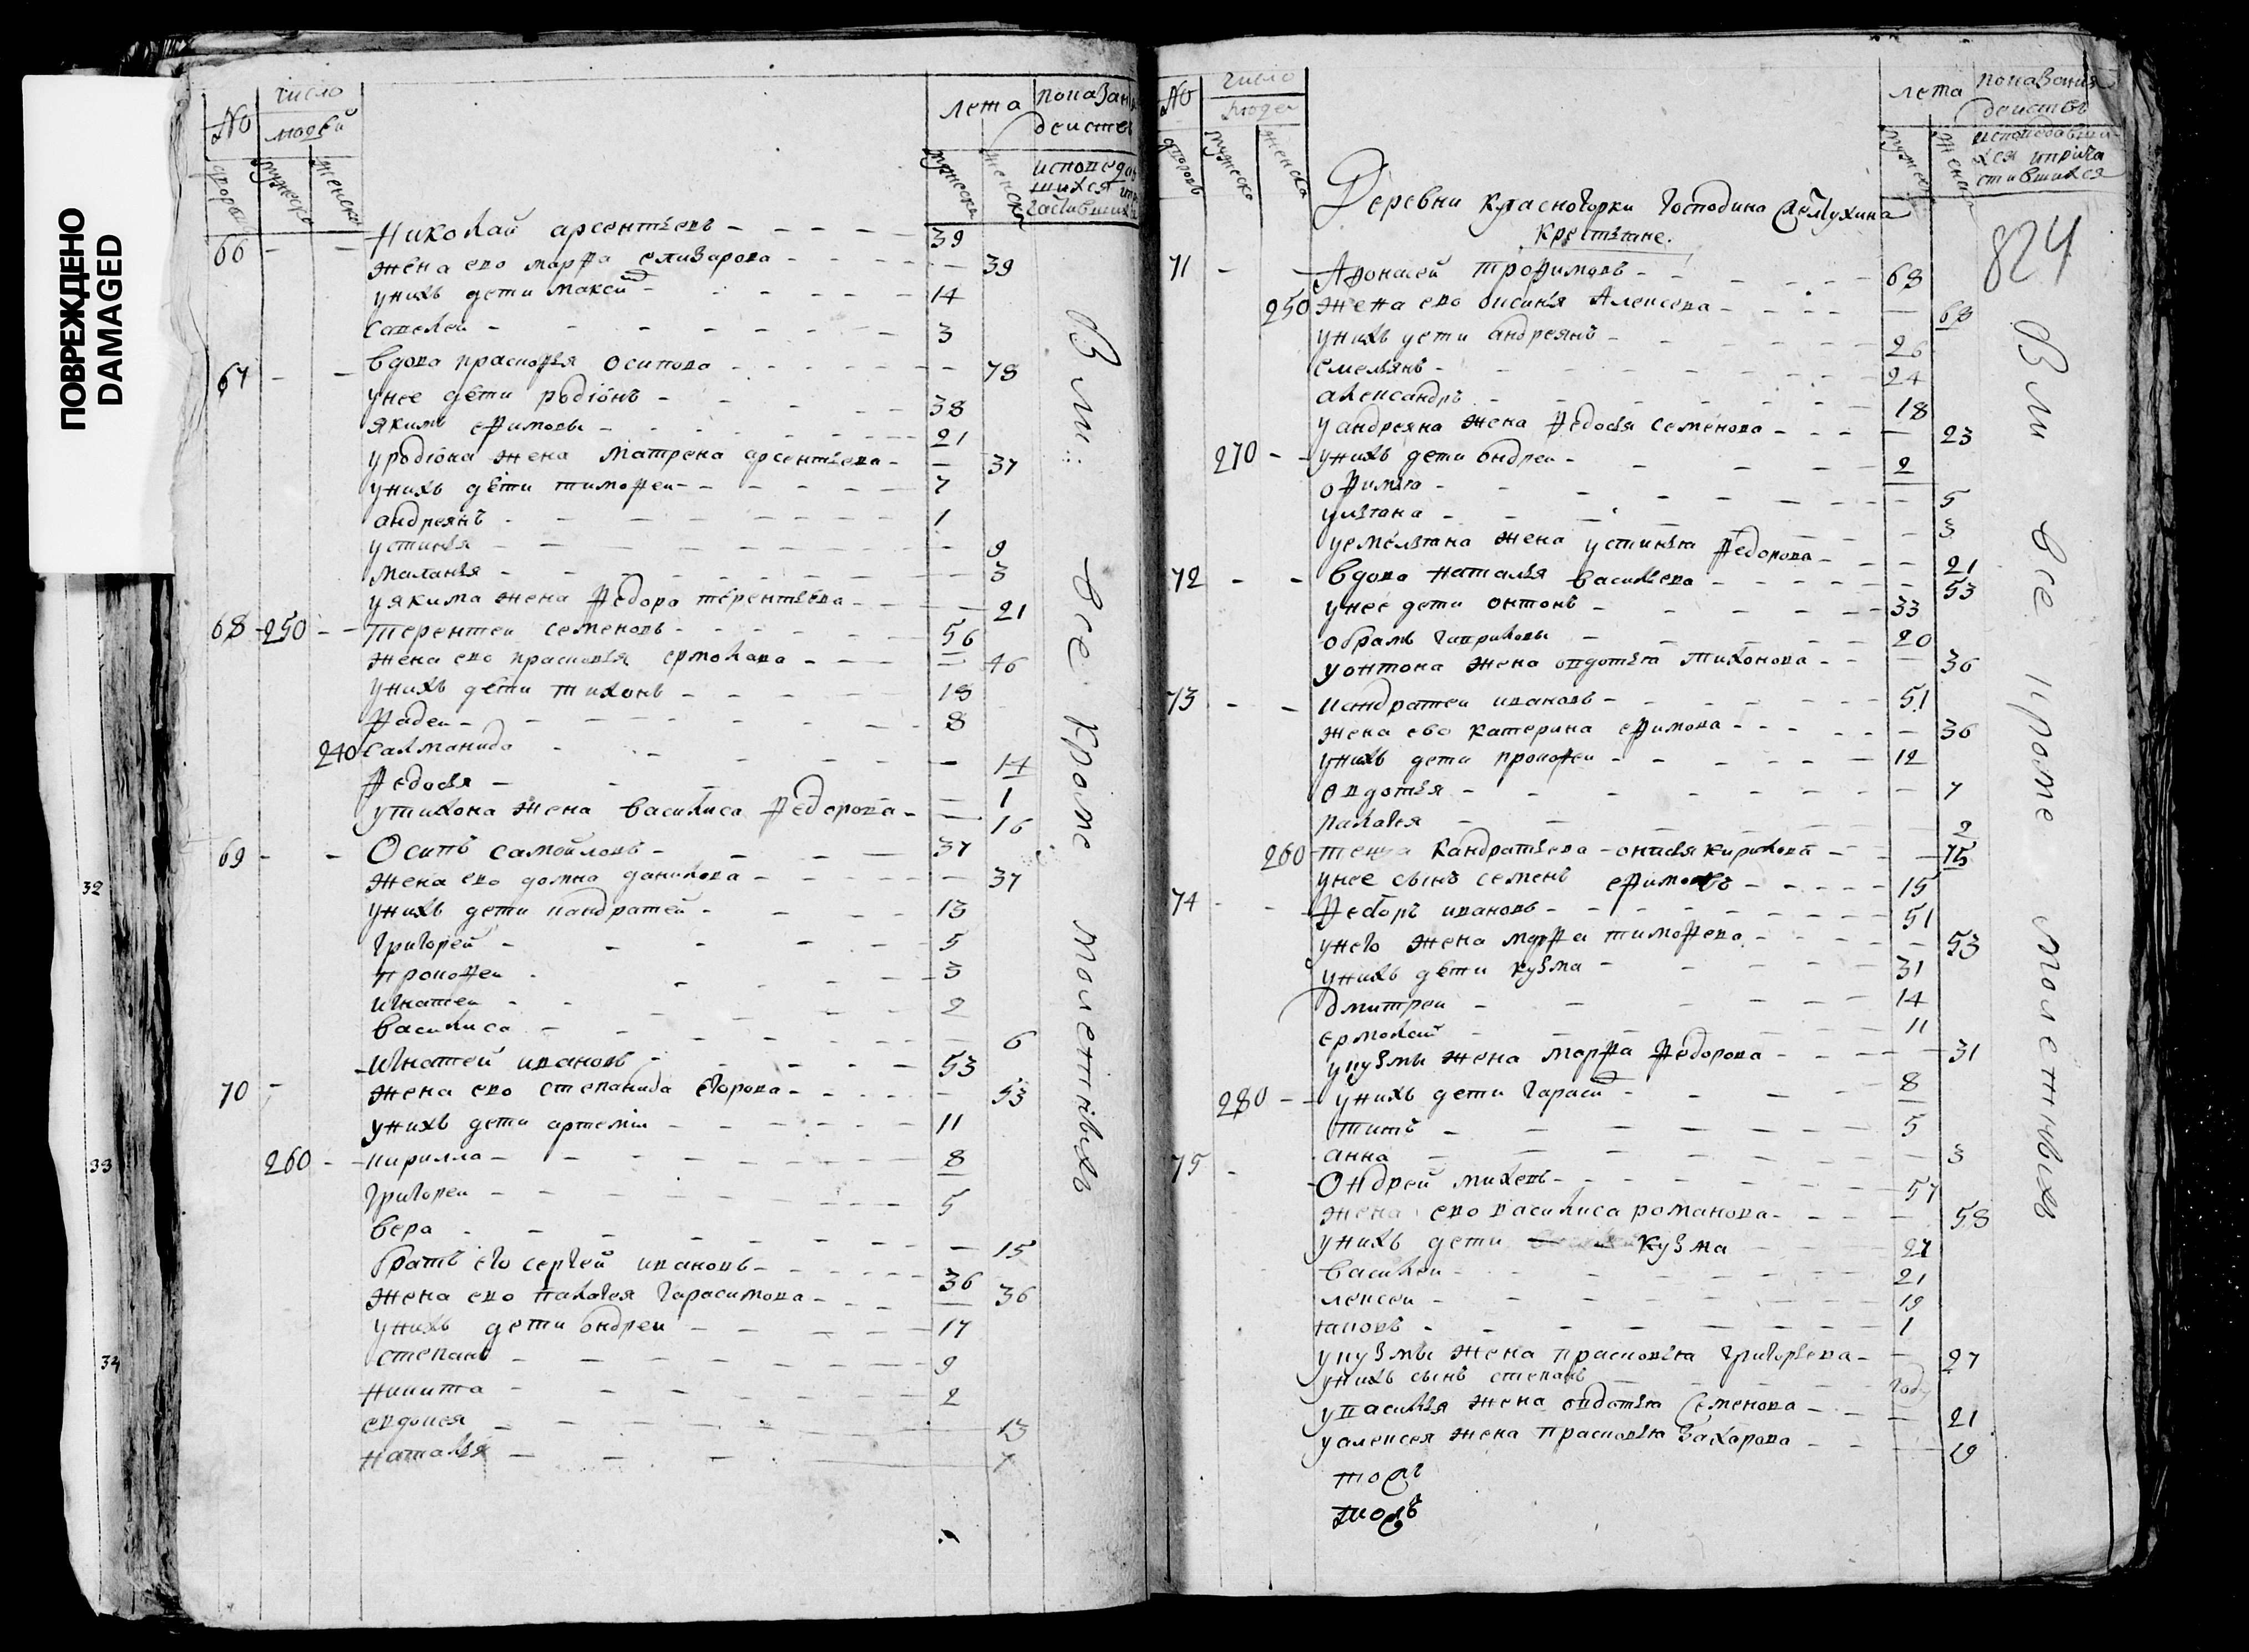 ПОВРЕЖДЕНО
DAMAGED
32
33
34
№ число людей лета показан деистев
дворовъ мужеска женска мужеска женска исповедав шихся ипри частивших
66 - - Николай арсентьевъ - 39
жена ево марфа елизарова - 39
унихъ дети максим - 14
савелей - 3
67 - - вдова прасковья осипова - 78
унее дети родіонъ - 38
якимъ ефимовы - 21
уродіона жена матрена арсентьева - 37
унихъ дѣти тимофеи - 7
андреянъ - 1
устинья - 9
маланья - 3
уякима жена федора терентьева - 21
68 - 250 - - терентеи семеновъ - 56
жена ево прасковья ермолава - 46
унихъ дѣти тихонъ - 18
фадеи - 8
240 салманида - 14
федосья - 1
утихона жена василиса федорова - 16
69 - - Осипъ самойловъ - 37
жена ево домна данилова - 37
унихъ дети кандратей - 13
григорей - 5
прокофеи - 3
игнатеи - 2
василиса - 6
Игнатей ивановъ - 53
70 - жена ево степанида егорова - 53
унихъ дети артеміи - 11
260 - - кирилла - 8
григореи - 5
вера - 15
братъ его сергей ивановъ - 36
жена ево палагея гарасимова - 36
унихъ дети ондреи - 17
степанъ - 9
никита - 2
евдокея - 13
наталья - 7
Все кроме малетнѣхъ
№ число люде лета показания деиствъ
дворовъ мужеска женска мужеск женск исповедавши- хся иприча стившихся
824
Деревни красногорки господина
крестьяне.
71 - - Афонасей трофимовъ - 68
250 жена ево оксинья Алексева - 68
унихъ дети андреянъ - 26
емельянъ - 24
александръ - 18
уандреяна жена федосья семенова - 23
270 - - унихъ дети ондреи - 2
офимья - 5
ульяна - 3
уемельяна жена устинья федорова - 21
72 - - вдова наталья васильева - 53
унее дети онтонъ - 33
обрамъ гавриловы - 20
уонтона жена овдотья тихонова - 36
73 - - кандратеи ивановъ - 51
жена ево катерина ефимова - 36
унихъ дети прокофеи - 12
овдотья - 7
палагея - 2
260 теща кандратьева - онисья кирилова - 75
унее сынъ семенъ ефимовъ - 15
74 - - федоръ ивановъ - 51
унего жена марфа тимофева - 53
унихъ дѣти кузма - 31
дмитреи - 14
ермолай - 11
укузмы жена марфа федорова - 31
280 - - унихъ дети гараси - 8
титъ - 5
анна - 3
75 - - Ондрей михевъ - 57
жена ево василиса романова - 58
унихъ дети кузма - 27
василеи - 21
лексеи - 19
яковъ - 1
укузмы жена прасковья григорьева - 27
унихъ сынъ степанъ - году
увасилья жена овдотья семенова - 21
уалексея жена прасковья захарова - 19
Все кроме малетнѣхъ